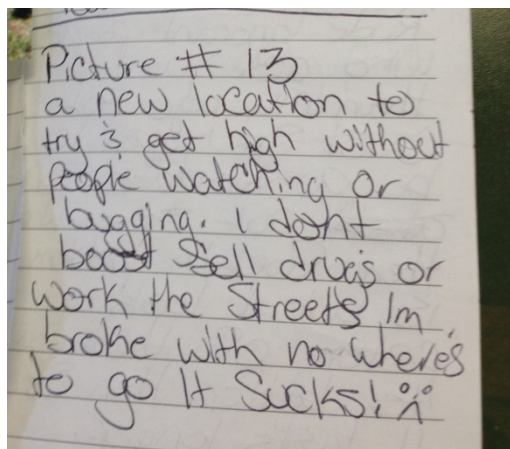 Picture # 13
a new location to
try & get high without
people watching or
bugging. I dont
boost Sell drugs or
work the Streets Im
broke with no where's
to go It Sucks! :(